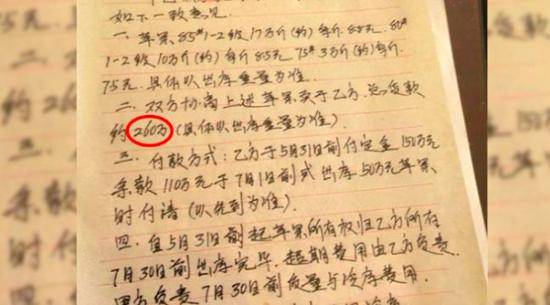 如下一致意见
一、苹果, 85#1-2级17万斤(约)每斤.88元. 80#
1-2级10万斤(约)每斤85元, 75#3万斤(约)每斤.
75元.具体以出库重量为准.
二、双方协商上述苹果卖于乙方.总货款
约260万(具体以出库重量为准).
三、付款方式:乙方于5月31日前付定金150万元
余款110万元于7月1日前或出库50万元苹果
时付清(以先到为准).
四、自5月31日前起苹果所有权归乙方所有
7月30日前出库完毕.超期费用由乙方负责.
甲方负责7月30日前质量与冷库费用.